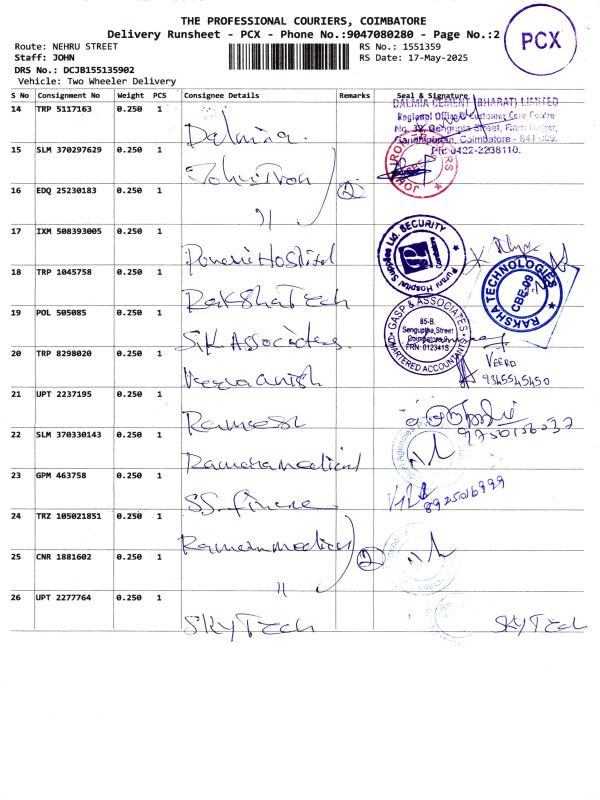 THE PROFESSIONAL COURIERS, COIMBATORE
Delivery Runsheet - PCX - Phone No.:9047080280 - Page No.:2
PCX
Route: NEHRU STREET
RS No.: 1551359
Staff: JOHN
RS Date: 17-May-2025
DRS No.: DCJB155135902
Vehicle: Two Wheeler Delivery
S No Consignment No Weight PCS Consignee Details Remarks Seal & Signature
14 TRP 5117163 0.250 1 Dalmia.
DALMIA CEMENT (BHARAT) LIMITED
Regional Office & Customer Care Centre
Sengupta Street, Ram Nagar,
Coimbatore - 641 009.
Ph: 0422-2238110.
15 SLM 370297629 0.250 1
16 EDQ 25230183 0.250 1 〃 2
17 IXM 508393005 0.250 1 Hospital
SECURITY
18 TRP 1045758 0.250 1 Raksha Tech
RAKSHA TECHNOLOGIES
CBE-09
19 POL 505085 0.250 1 SK Associates.
GASP & ASSOCIATES
85-B,
Sengupta Street
Coimbatore-9
FRN: 012341S
CHARTERED ACCOUNTANTS
20 TRP 8298020 0.250 1
VEERA
9345545450
21 UPT 2237195 0.250 1 Ramesh
22 SLM 370330143 0.250 1 medical
23 GPM 463758 0.250 1 SS
8925016999
24 TRZ 105021851 0.250 1 medical
25 CNR 1881602 0.250 1 〃 2
26 UPT 2277764 0.250 1 SKYTech SKYTech